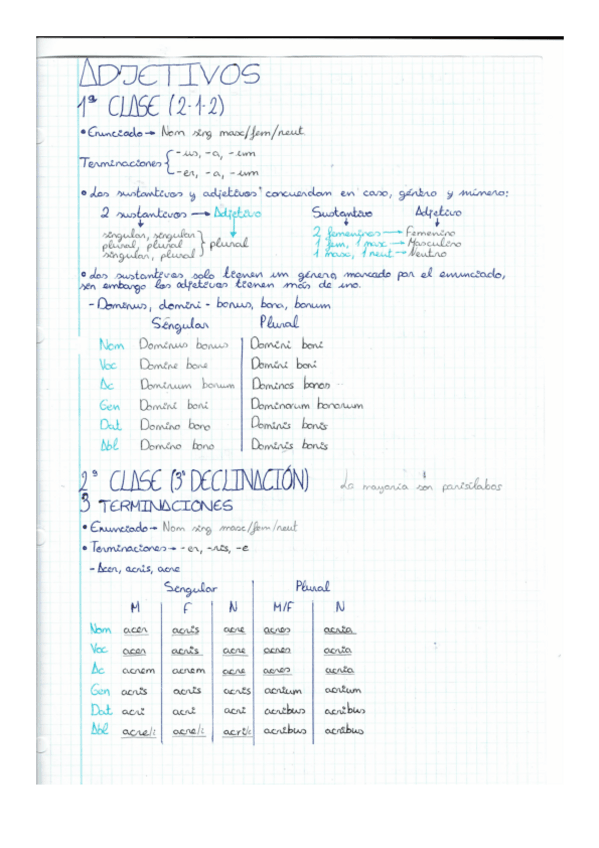 ADJETIVOS
1ª CLASE (2-1-2)
• Enunciado → Nom sing masc/fem/neut
Terminaciones { -us, -a, -um
-er, -a, -um
• Los sustantivos y adjetivos concuerdan en caso, género y número:
2 sustantivos → Adjetivo Sustantivo Adjetivo
singular, singular 2 femeninos → Femenino
plural, plural } plural 1 fem, 1 masc → Masculino
singular, plural 1 masc, 1 neut → Neutro
• Los sustantivos solo tienen un género marcado por el enunciado,
sin embargo los adjetivos tienen más de uno.
- Dominus, domini - bonus, bona, bonum
Singular Plural
Nom Dominus bonus Domini boni
Voc Domine bone Domini boni
Ac Dominum bonum Dominos bonos
Gen Domini boni Dominorum bonorum
Dat Domino bono Dominis bonis
Abl Domino bono Dominis bonis
2ª CLASE (3ª DECLINACIÓN) La mayoría son parisílabos
3 TERMINACIONES
• Enunciado → Nom sing masc/fem/neut
• Terminaciones → -er, -ris, -e
- Acer, acris, acre
Singular Plural
M F N M/F N
Nom acer acris acre acres acria
Voc acer acris acre acres acria
Ac acrem acrem acre acres acria
Gen acris acris acris acrium acrium
Dat acri acri acri acribus acribus
Abl acre/i acre/i acri/i acribus acribus